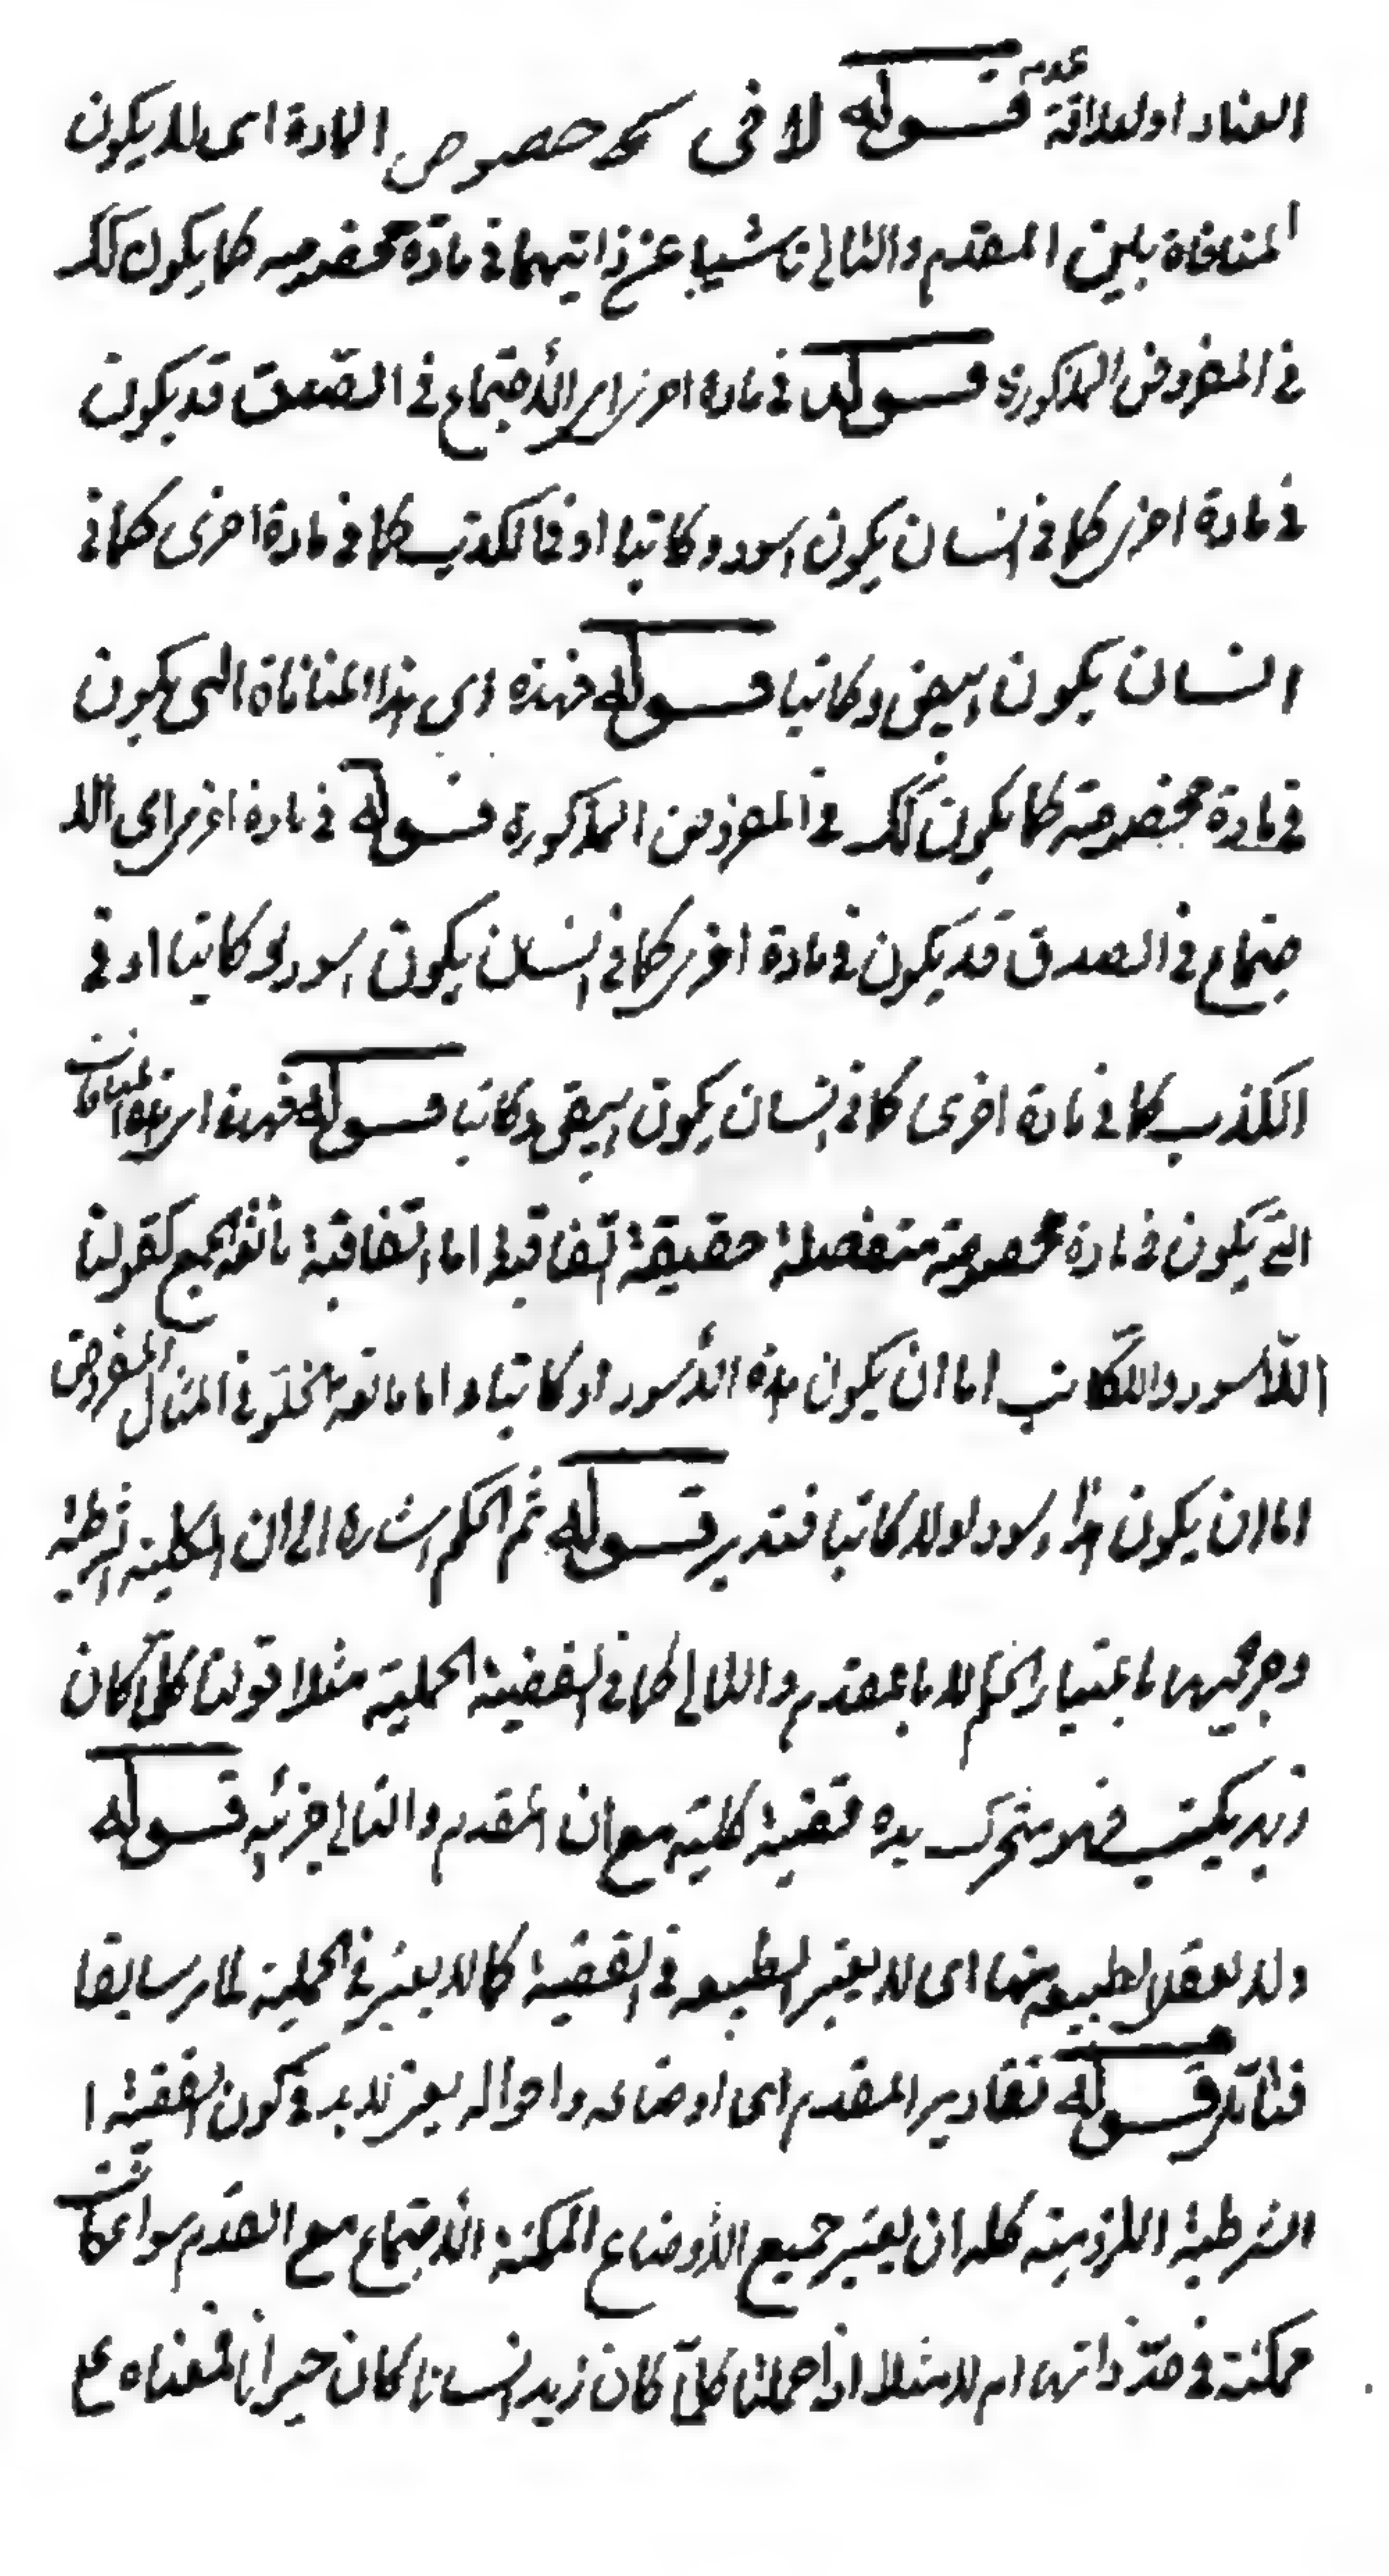 العناد او لعلاقة عدمه قوله لا فى خصوص المادة اى لا يكون
المنافاة بين المقدم والتالى ناشيا عن ذاتيهما فى مادة مخصوصه كما يكون كك
فى المفروض المذكورة قوله فى مادة اخرى اى الاجتماع فى الصدق قد يكون
فى مادة اخرى كما فى انسان يكون اسود وكاتبا او فى الكذب كما فى مادة اخرى كما فى
انسان يكون ابيض وكاتبا قوله فهذه اى هذا المنافاة التى يكون
فى مادة مخصوصة كما يكون كك فى المفروض المذكورة قوله فى مادة اخرى اى الا
جتماع فى الصدق قد يكون فى مادة اخرى كما فى انسان يكون اسود وكاتبا او فى
الكذب كما فى مادة اخرى كما فى انسان يكون ابيض وكاتبا قوله فهذه اى هذه المنافات
التى يكون فى مادة مخصوصة منفصلة حقيقة اتفاقية اما اتفاقية مانعة الجمع كقولنا
اللاأسود واللاكاتب اما ان يكون هذه الأسود او كاتبا واما مانعة الخلو فى المثال المفروض
اما ان يكون هذا اسود او لا كاتبا فتدبر قوله ثم الحكم اشاره الى ان الكلية الشرطية
وجزئيها باعتبار الحكم لا بالمقدم والتالى كما فى القضية الحملية مثلا قولنا كلما كان
زيد يكتب فهو متحرك يده قضية كلية مع ان المقدم والتالى جزئية قوله
ولا يعقل الطبيعه منها اى لا يعتبر الطبيعه فى القضية كما لا يعتبر فى الحملية لما مر سابقا
فتأمل قوله تقادير المقدم اى اوضاعه واحواله يعنى لا بد فى كون القضية ا
الشرطية اللزومية كله ان يعتبر جميع الأوضاع الممكنة الاجتماع مع المقدم سواء كانت
ممكنة فى حد ذاتها ام لا مثلا اذا حملنا كلما كان زيد انسانا كان حيوانا فمعناه على